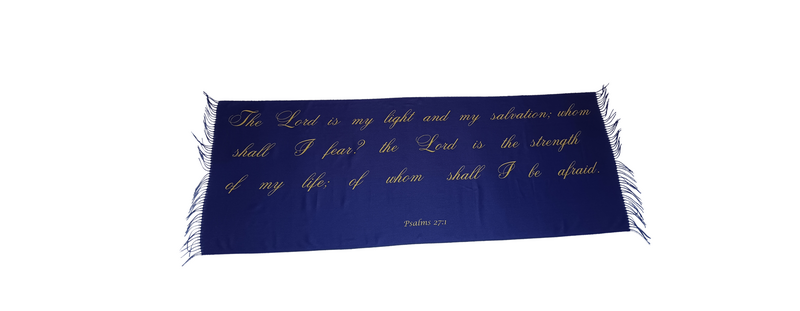 The Lord is my light and my salvation; whom
shall I fear? the Lord is the strength
of my life; of whom shall I be afraid.
Psalms 27:1